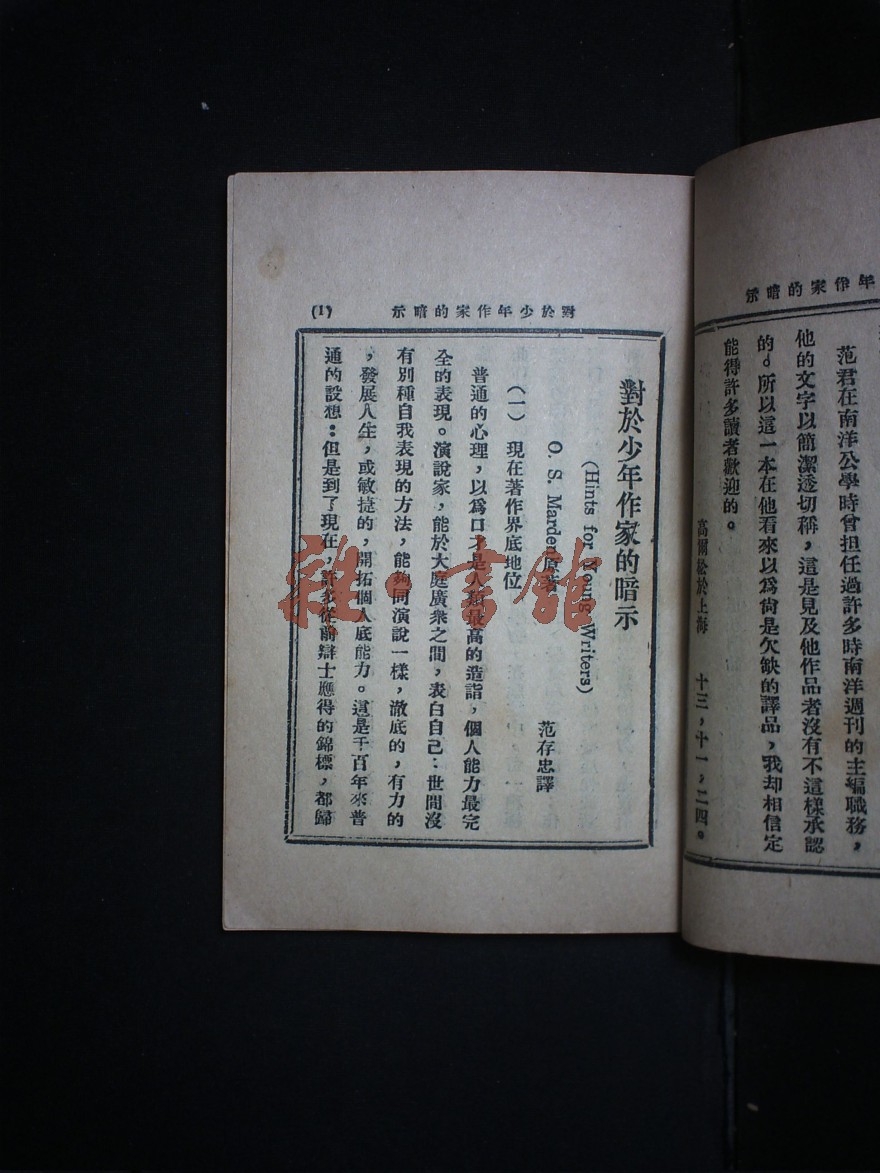 年作家的暗示
范君在南洋公學時曾担任過許多時南洋週刊的主編職務，
他的文字以簡潔透切稱，這是見及他作品者沒有不這樣承認
的。所以這一本在他看來以爲尙是欠缺的譯品，我却相信定
能得許多讀者歡迎的。
高爾松於上海 十三，十一，二四。
對於少年作家的暗示 (1)
對於少年作家的暗示
(Hints for Young Writers)
O. S. Marden原著
范存忠譯
（一） 現在著作界底地位
普通的心理，以爲口才是人類最高的造詣，個人能力最完
全的表現。演說家，能於大庭廣衆之間，表白自己：世間沒
有別種自我表現的方法，能夠同演說一樣，澈底的，有力的
，發展人生，或敏捷的，開拓個人底能力。這是千百年來普
通的設想：但是到了現在，許多從前辯士應得的錦標，都歸
雜·書舘